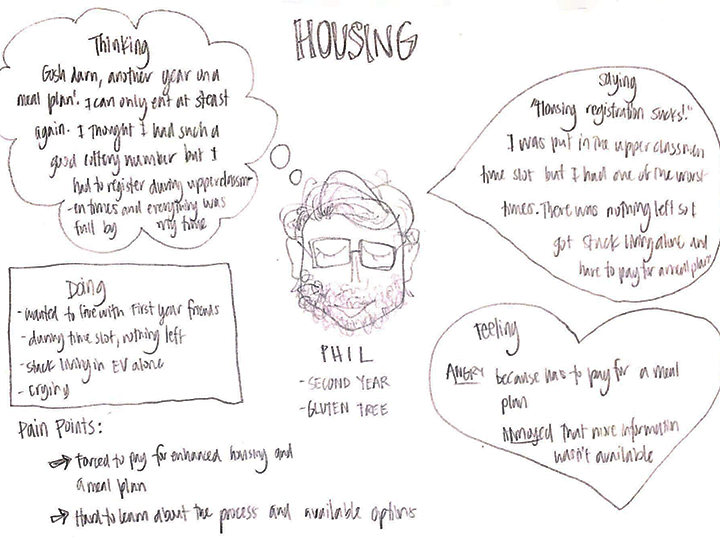 HOUSING
Thinking
Gosh darn, another year on a
meal plan! I can only eat at steast
again. I thought I had such a
good lottery number but I
had to register during upperclassm
-en times and everything was
full by my time
Saying
"Housing registration sucks!"
I was put in the upperclassmen
time slot but I had one of the worst
times. There was nothing left so I
got stuck living alone and
have to pay for a meal plan"
Doing
- wanted to live with First year friends
- during time slot, nothing left
- stuck living in EV alone
- crying
PHIL
- SECOND YEAR
- GLUTEN FREE
Feeling
ANGRY because has to pay for a meal
plan
Annoyed that more information
wasn't available
Pain Points:
Forced to pay for enhanced housing and
a meal plan
Hard to learn about the process and available options